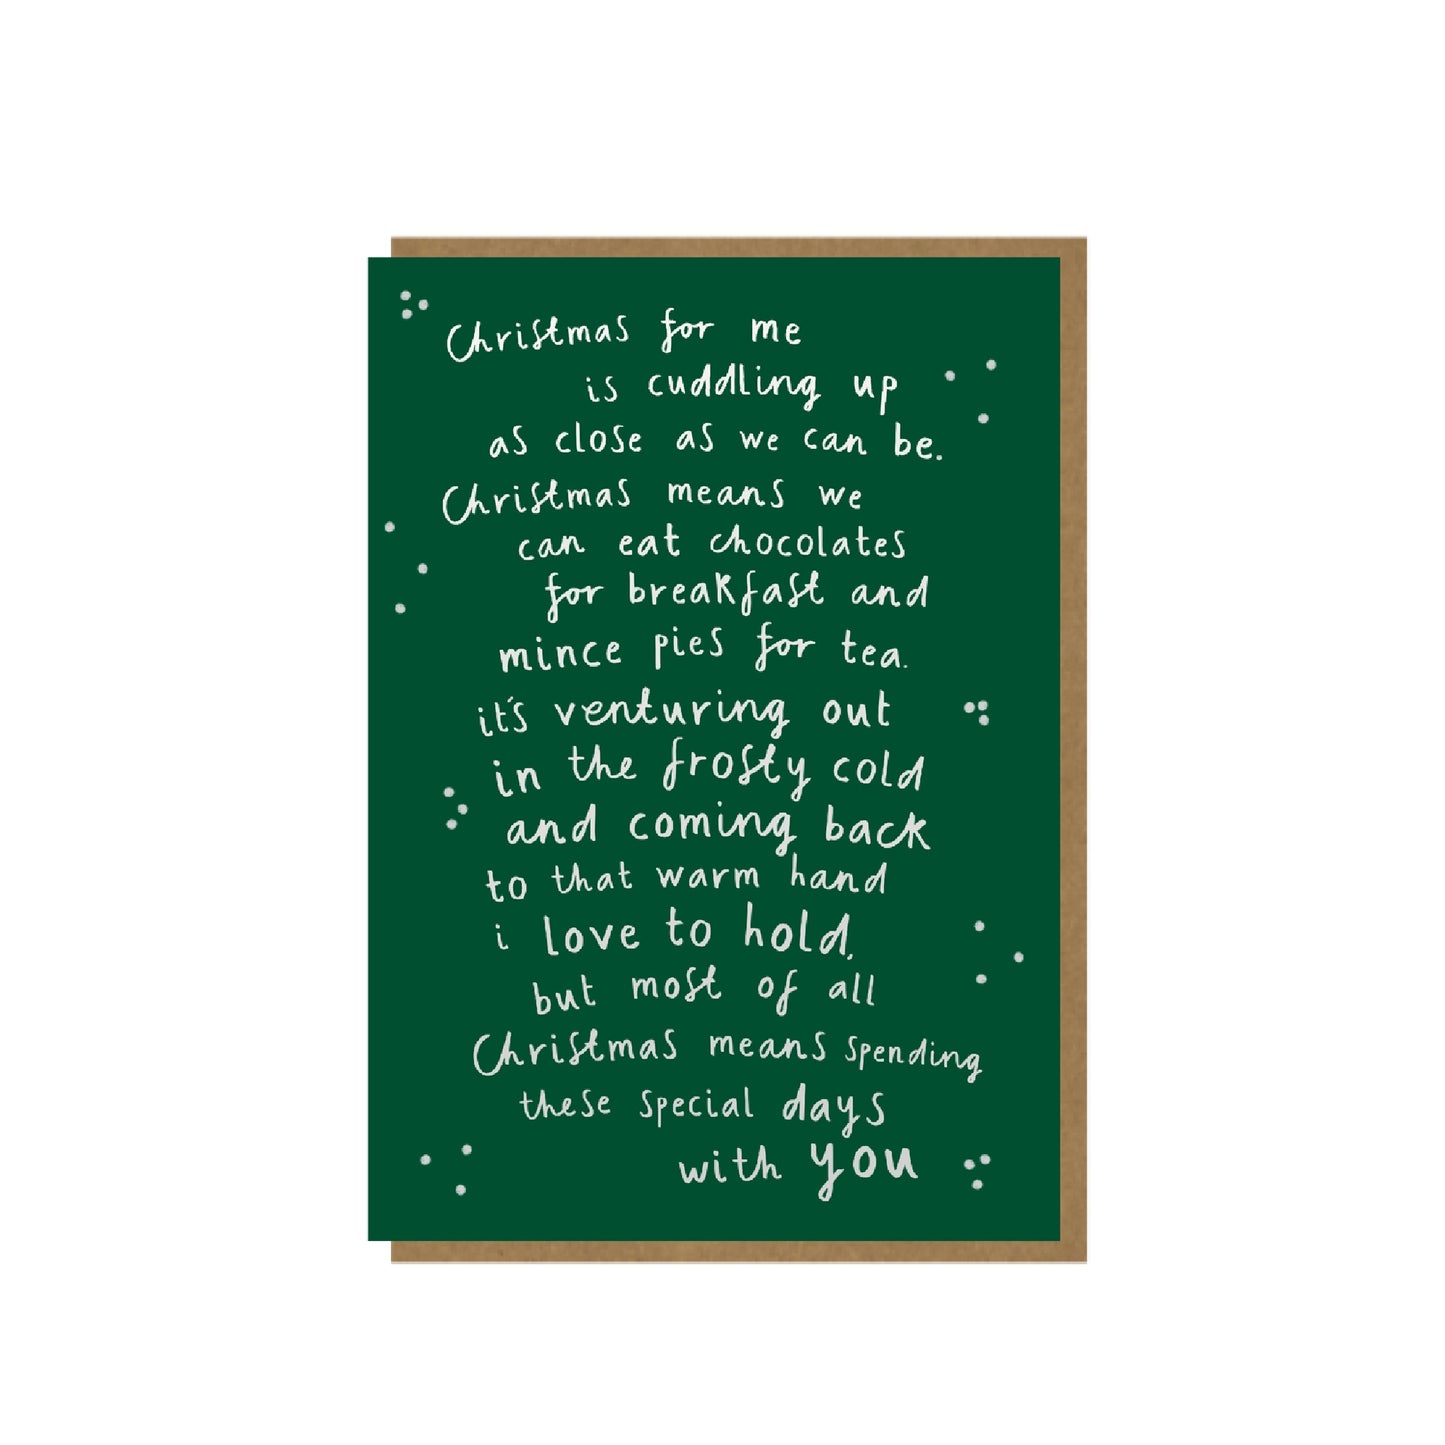 Christmas for me
is cuddling up
as close as we can be.
Christmas means we
can eat chocolates
for breakfast and
mince pies for tea.
it's venturing out
in the frosty cold
and coming back
to that warm hand
i love to hold,
but most of all
Christmas means spending
these special days
with you